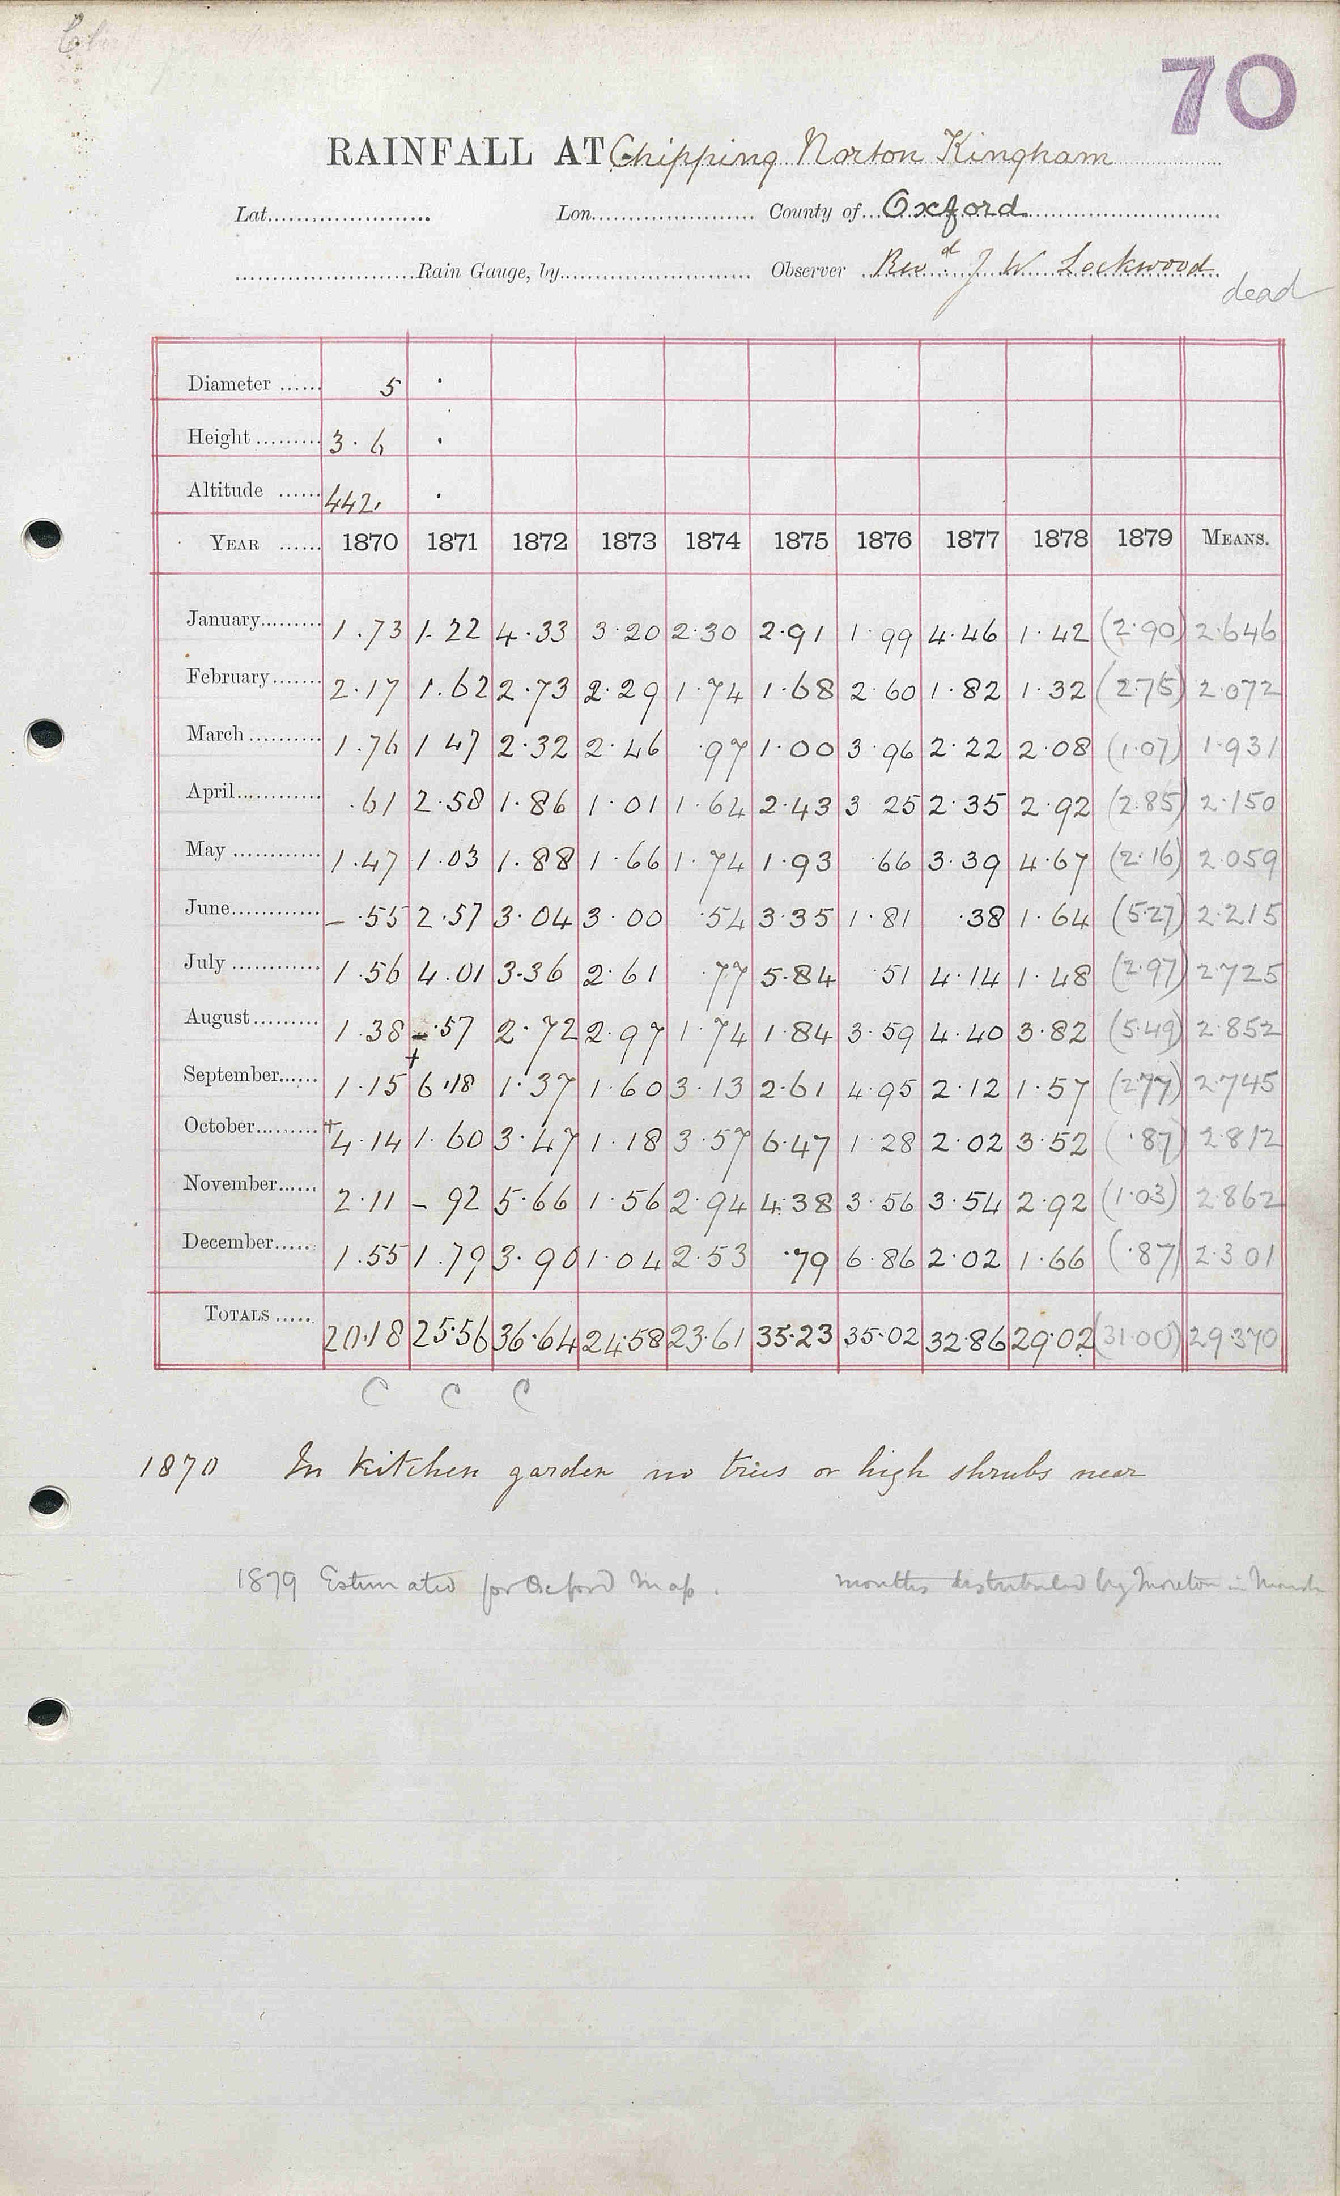 70
RAINFALL AT Chipping Norton Kingham
Lat. Lon. County of Oxford
Rain Gauge, by Observer Revd J W Lockwood
dead
Diameter 5 .
Height 3.6 .
Altitude 442. .
YEAR 1870 1871 1872 1873 1874 1875 1876 1877 1878 1879 MEANS.
January 1.73 1.22 4.33 3.20 2.30 2.91 1.99 4.46 1.42 (2.90) 2.646
February 2.17 1.62 2.73 2.29 1.74 1.68 2.60 1.82 1.32 (2.75) 2.072
March 1.76 1.47 2.32 2.46 .97 1.00 3.96 2.22 2.08 (1.07) 1.931
April .61 2.58 1.86 1.01 1.64 2.43 3.25 2.35 2.92 (2.85) 2.150
May 1.47 1.03 1.88 1.66 1.74 1.93 .66 3.39 4.67 (2.16) 2.059
June - .55 2.57 3.04 3.00 .54 3.35 1.81 .38 1.64 (5.27) 2.215
July 1.56 4.01 3.36 2.61 .77 5.84 .51 4.14 1.48 (2.97) 2.725
August 1.38 - .57 2.72 2.97 1.74 1.84 3.59 4.40 3.82 (5.49) 2.852
September 1.15 + 6.18 1.37 1.60 3.13 2.61 4.95 2.12 1.57 (2.77) 2.745
October + 4.14 1.60 3.47 1.18 3.57 6.47 1.28 2.02 3.52 (.87) 2.812
November 2.11 - 92 5.66 1.56 2.94 4.38 3.56 3.54 2.92 (1.03) 2.862
December 1.55 1.79 3.90 1.04 2.53 .79 6.86 2.02 1.66 (.87) 2.301
TOTALS 20.18 25.56 36.64 24.58 23.61 35.23 35.02 32.86 29.02 (31.00) 29.370
C C C
1870 In kitchen garden no trees or high shrubs near
1879 Estimated for Oxford Map. months distributed by Moreton in Marsh